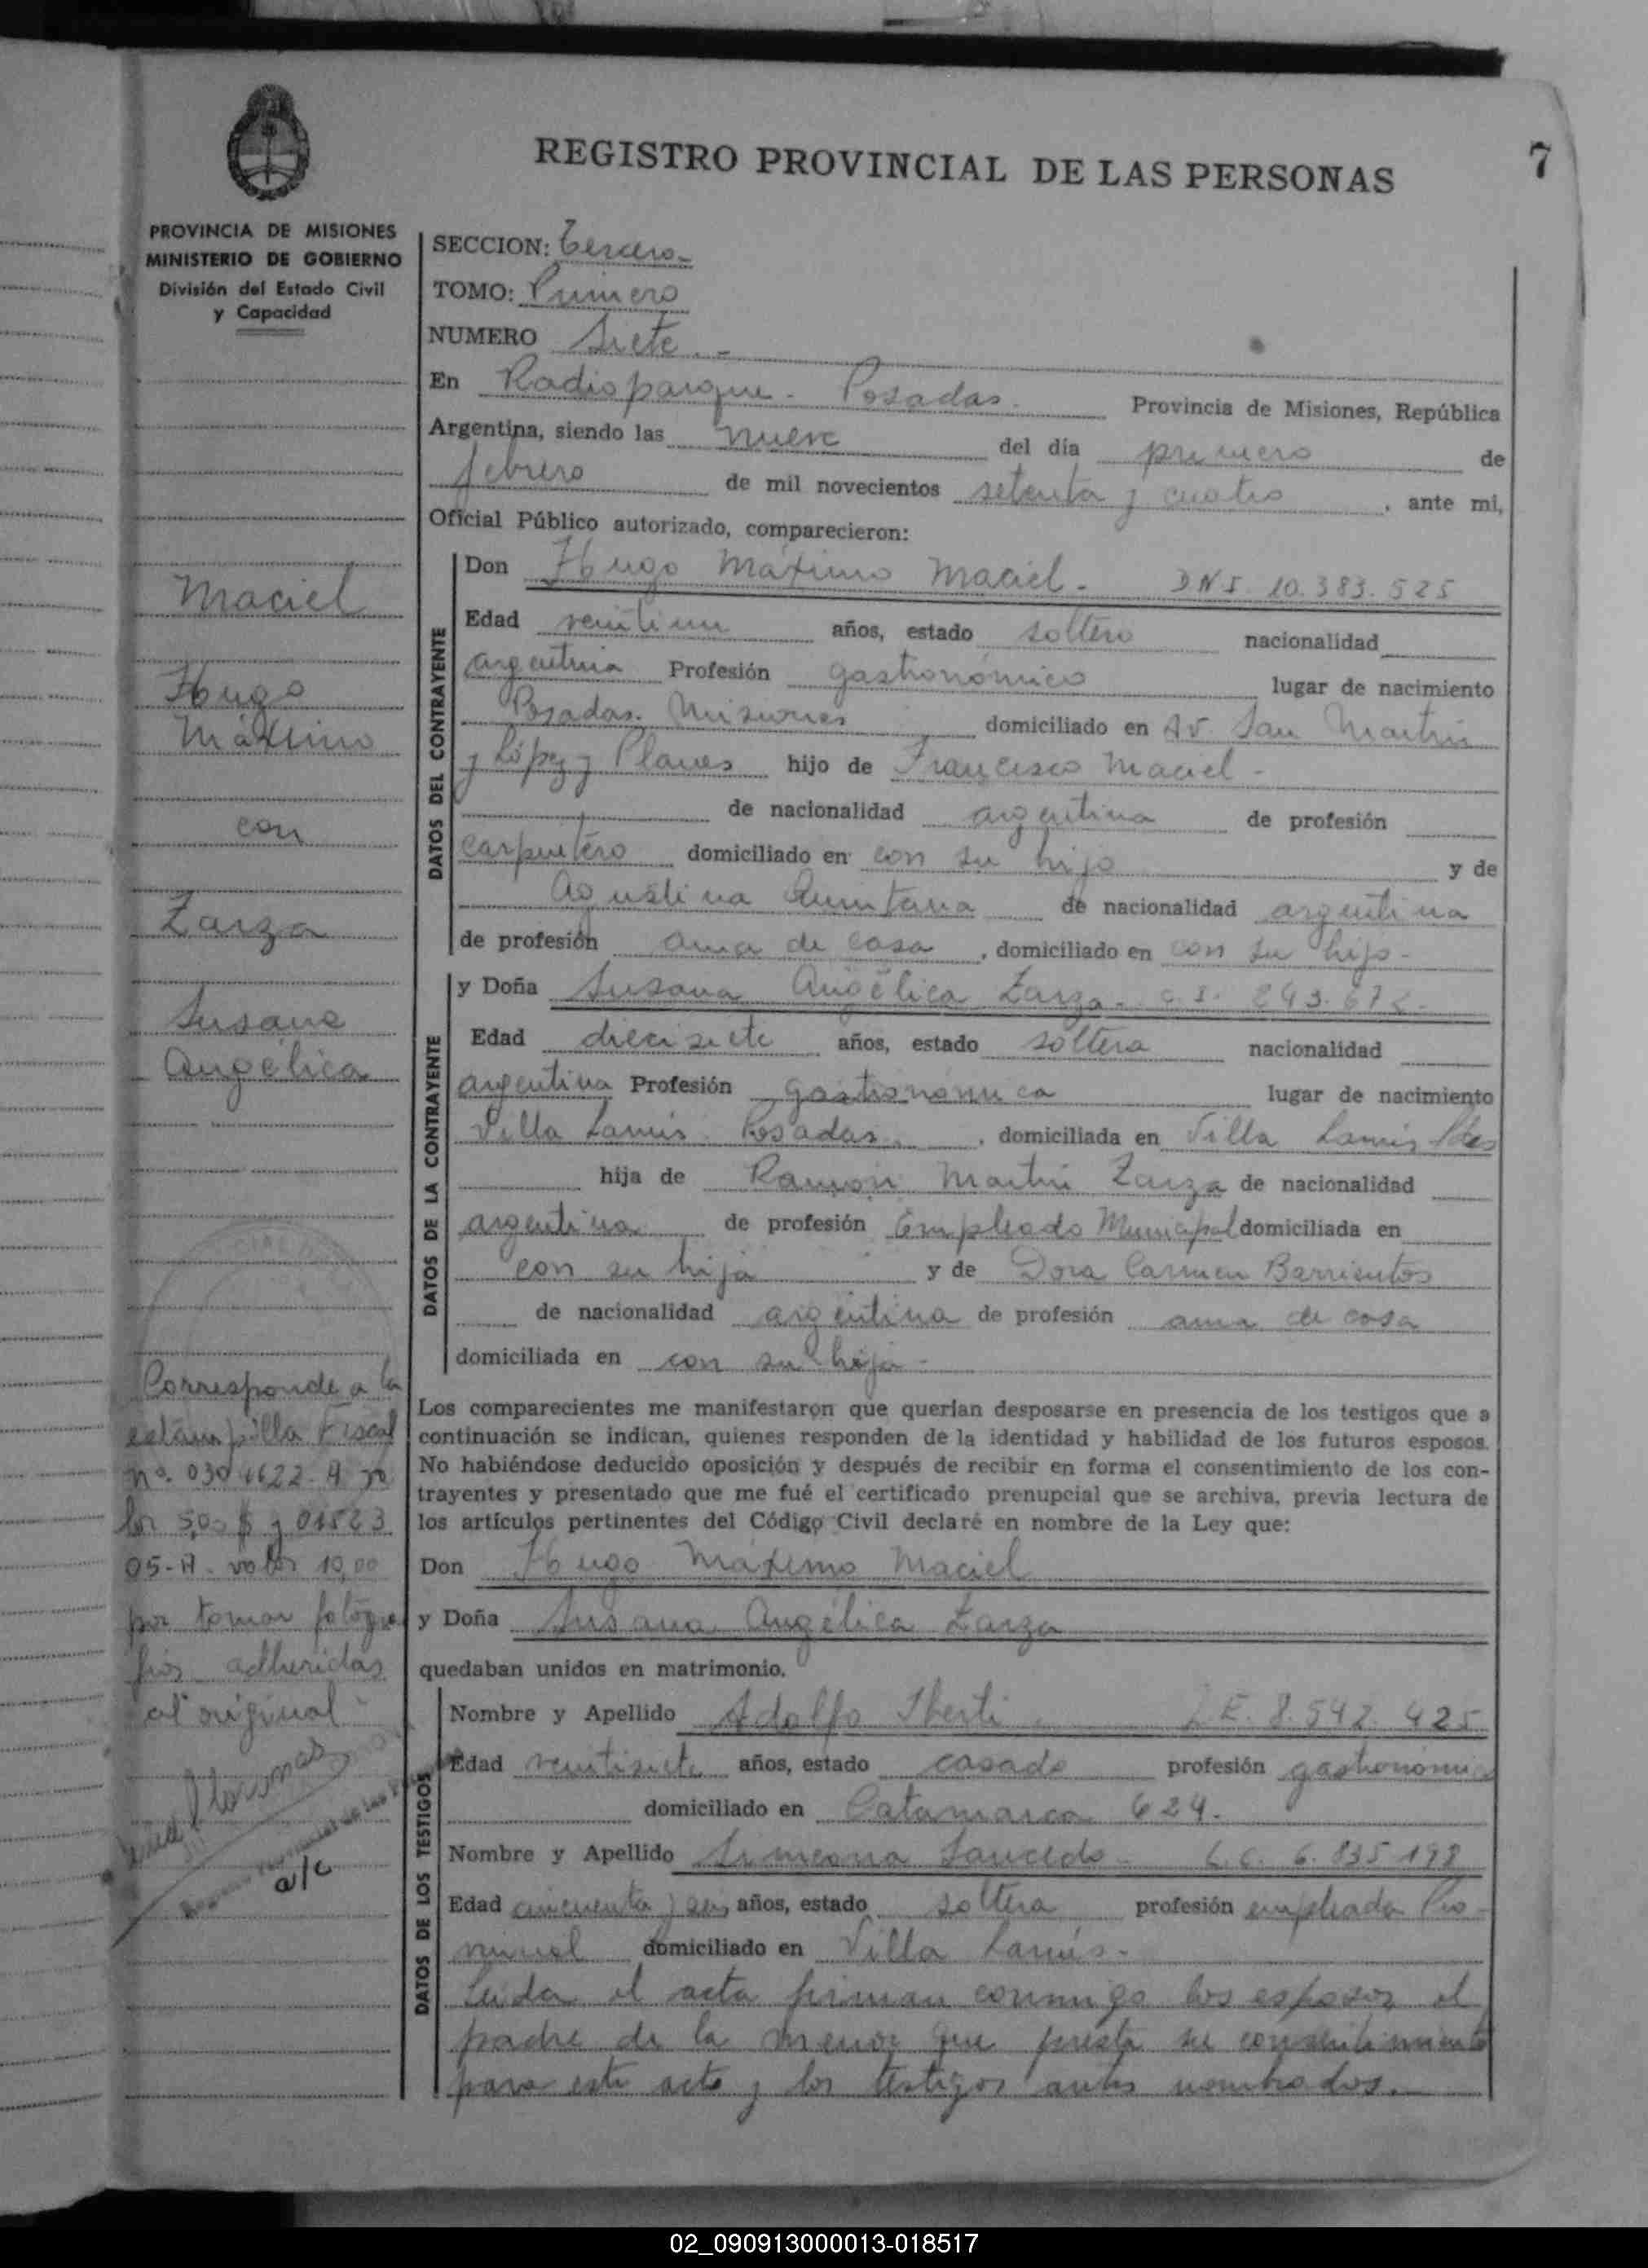 REGISTRO PROVINCIAL DE LAS PERSONAS
7
PROVINCIA DE MISIONES
MINISTERIO DE GOBIERNO
División del Estado Civil
y Capacidad
SECCION: Tercero.-
TOMO: Primero
NUMERO Siete.-
En Radioparque - Posadas. Provincia de Misiones, República
Argentina, siendo las nueve del día primero de
febrero de mil novecientos setenta y cuatro, ante mi,
Oficial Público autorizado, comparecieron:
DATOS DEL CONTRAYENTE
Don Hugo Máximo Maciel - DNI. 10.383.525
Edad veintiun años, estado soltero nacionalidad
argentina Profesión gastronómico lugar de nacimiento
Posadas. Misiones domiciliado en Av. San Martin
y López y Planes hijo de Francisco Maciel -
de nacionalidad argentina de profesión
carpintero domiciliado en con su hijo y de
Agustina Quintana de nacionalidad argentina
de profesión ama de casa, domiciliado en con su hijo -
DATOS DE LA CONTRAYENTE
y Doña Susana Angélica Zarza - c.I. 243.672-
Edad diecisiete años, estado soltera nacionalidad
argentina Profesión gastronómica lugar de nacimiento
Villa Lanús. Posadas. , domiciliada en Villa Lanús Pdas
hija de Ramón Martin Zarza de nacionalidad
argentina de profesión Empleado Municipal domiciliada en
con su hija y de Dora Carmen Barrientos
de nacionalidad argentina de profesión ama de casa
domiciliada en con su hija -
Los comparecientes me manifestaron que querían desposarse en presencia de los testigos que a
continuación se indican, quienes responden de la identidad y habilidad de los futuros esposos.
No habiéndose deducido oposición y después de recibir en forma el consentimiento de los con-
trayentes y presentado que me fué el certificado prenupcial que se archiva, previa lectura de
los artículos pertinentes del Código Civil declaré en nombre de la Ley que:
Don Hugo Máximo Maciel
y Doña Susana Angélica Zarza
quedaban unidos en matrimonio.
DATOS DE LOS TESTIGOS
Nombre y Apellido Adolfo L.E. 8.542.425
Edad veintisiete años, estado casado profesión gastronomico
domiciliado en Catamarca 624.
Nombre y Apellido Simeona Saucedo - L.C. 6.835.198
Edad cincuenta y seis años, estado soltera profesión empleada Pro-
vincial domiciliado en Villa Lanús -
Leída el acta firman conmigo los esposos el
padre de la menor que presta su consentimiento
para este acto y los testigos antes nombrados.
Maciel
Hugo
Máximo
con
Zarza
Susana
Angélica
Corresponde a la
estampilla Fiscal
nº. 0304622-A
5,00 $ y 01523
05-A. valor 10,00
por tomar fotogra
fias adheridas
al original
a/c
02_090913000013-018517